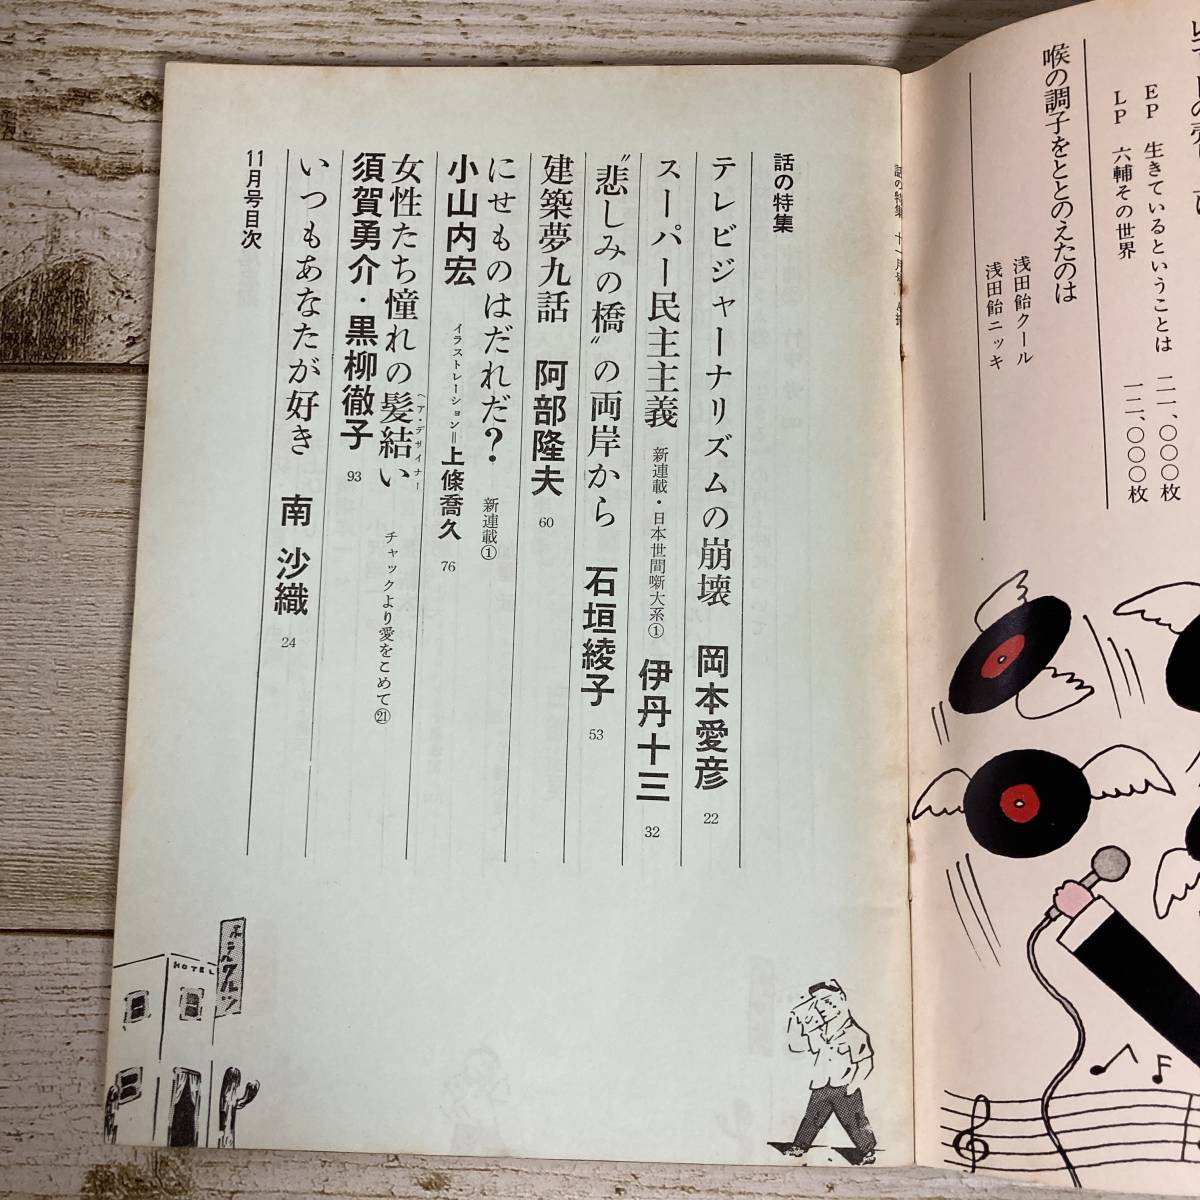 喉の調子をととのえたのは
EP 生きているということは 二一、〇〇〇枚
LP 六輔その世界 一二、〇〇〇枚
浅田飴クール
浅田飴ニッキ
話の特集
テレビジャーナリズムの崩壊 岡本愛彦 22
スーパー民主主義 新連載・日本世間噺大系① 伊丹十三 32
〝悲しみの橋〟の両岸から 石垣綾子 53
建築夢九話 阿部隆夫 60
にせものはだれだ? 新連載①
小山内宏 イラストレーション=上條喬久 76
女性たち憧れの髪結い ヘア・デザイナー チャックより愛をこめて㉑
須賀勇介・黒柳徹子 93
いつもあなたが好き 南 沙織 24
11月号目次
HOTEL
ホテルクルツ